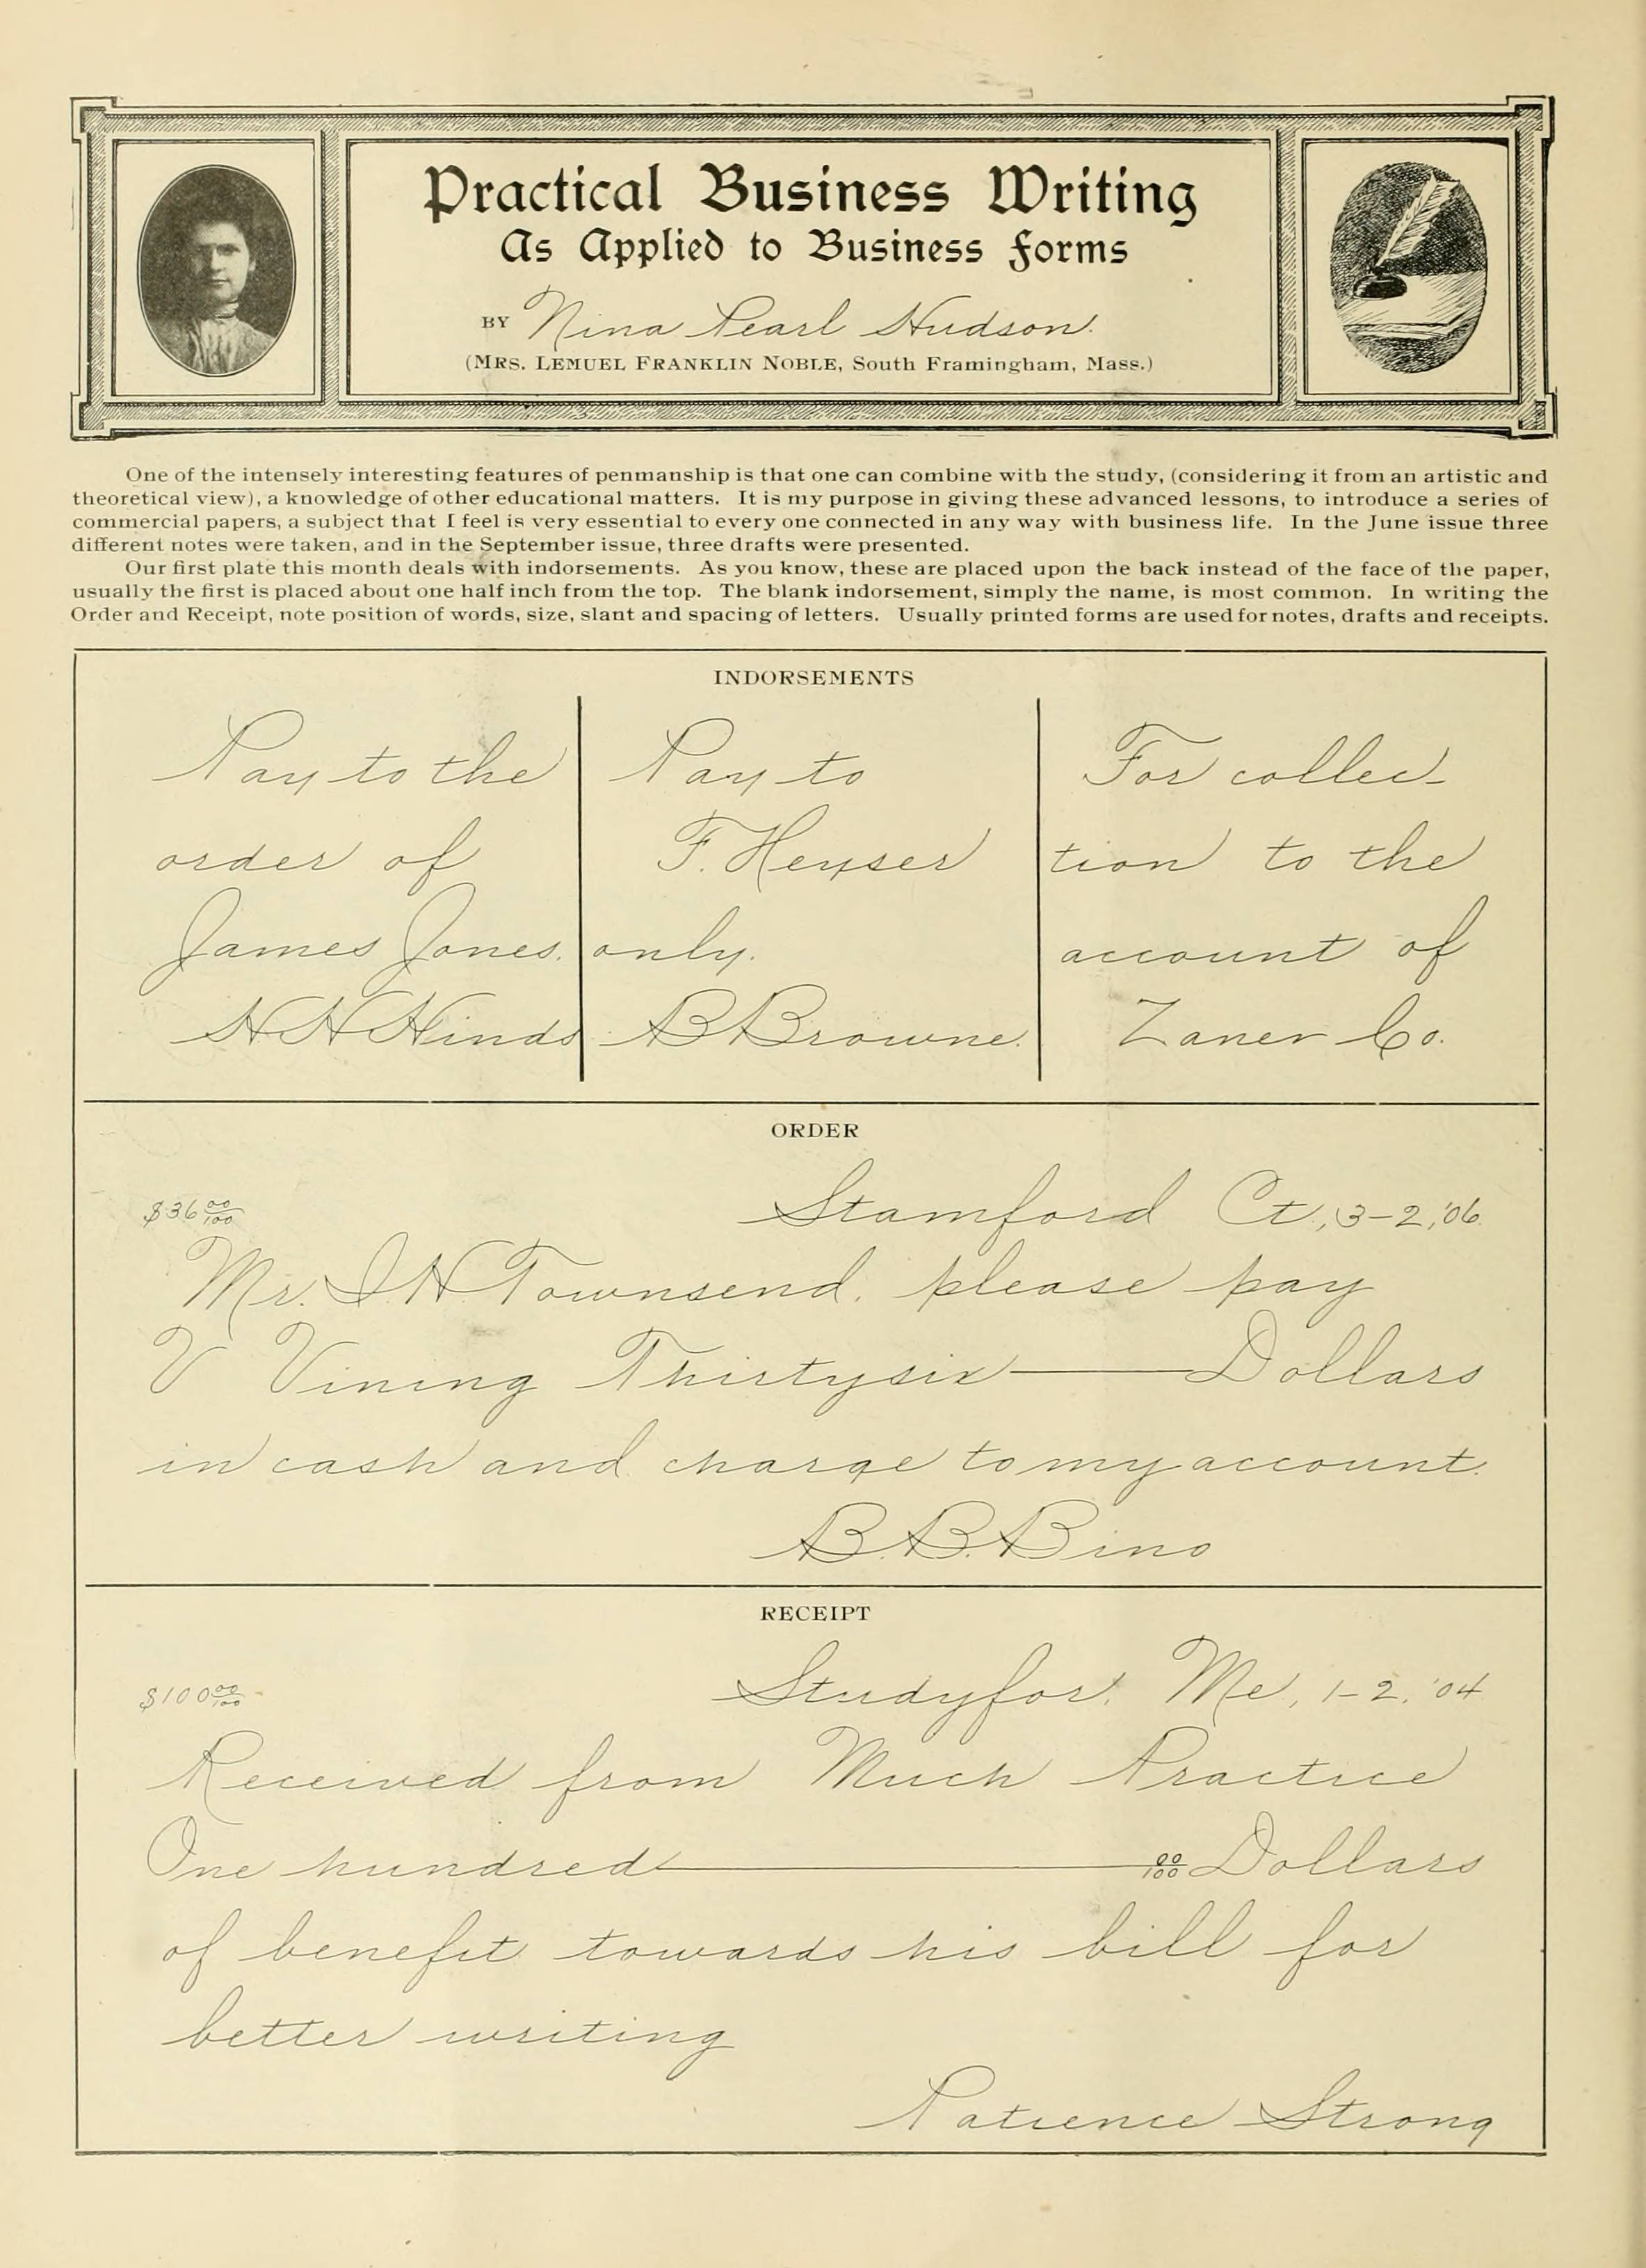 Practical Business Writing
As Applied to Business Forms
BY Nina Pearl Hudson.
(MRS. LEMUEL FRANKLIN NOBLE, South Framingham, Mass.)
One of the intensely interesting features of penmanship is that one can combine with the study, (considering it from an artistic and
theoretical view), a knowledge of other educational matters. It is my purpose in giving these advanced lessons, to introduce a series of
commercial papers, a subject that I feel is very essential to every one connected in any way with business life. In the June issue three
different notes were taken, and in the September issue, three drafts were presented.
Our first plate this month deals with indorsements. As you know, these are placed upon the back instead of the face of the paper,
usually the first is placed about one half inch from the top. The blank indorsement, simply the name, is most common. In writing the
Order and Receipt, note position of words, size, slant and spacing of letters. Usually printed forms are used for notes, drafts and receipts.
INDORSEMENTS
Pay to the
order of
James Jones.
H H Hinds
Pay to
F. Heyser
only.
B Browne.
For collec-
tion to the
account of
Zaner Co.
ORDER
$36 00/100
Stamford Ct., 3-2, '06.
Mr. I H Townsend, please pay
V Vining Thirtysix Dollars
in cash and charge to my account.
B. B. Bino
RECEIPT
$100 00/100
Studyfor, Me, 1-2, '04
Received from Much Practice
One hundred 00/100 Dollars
of benefit towards his bill for
better writing
Patience Strong